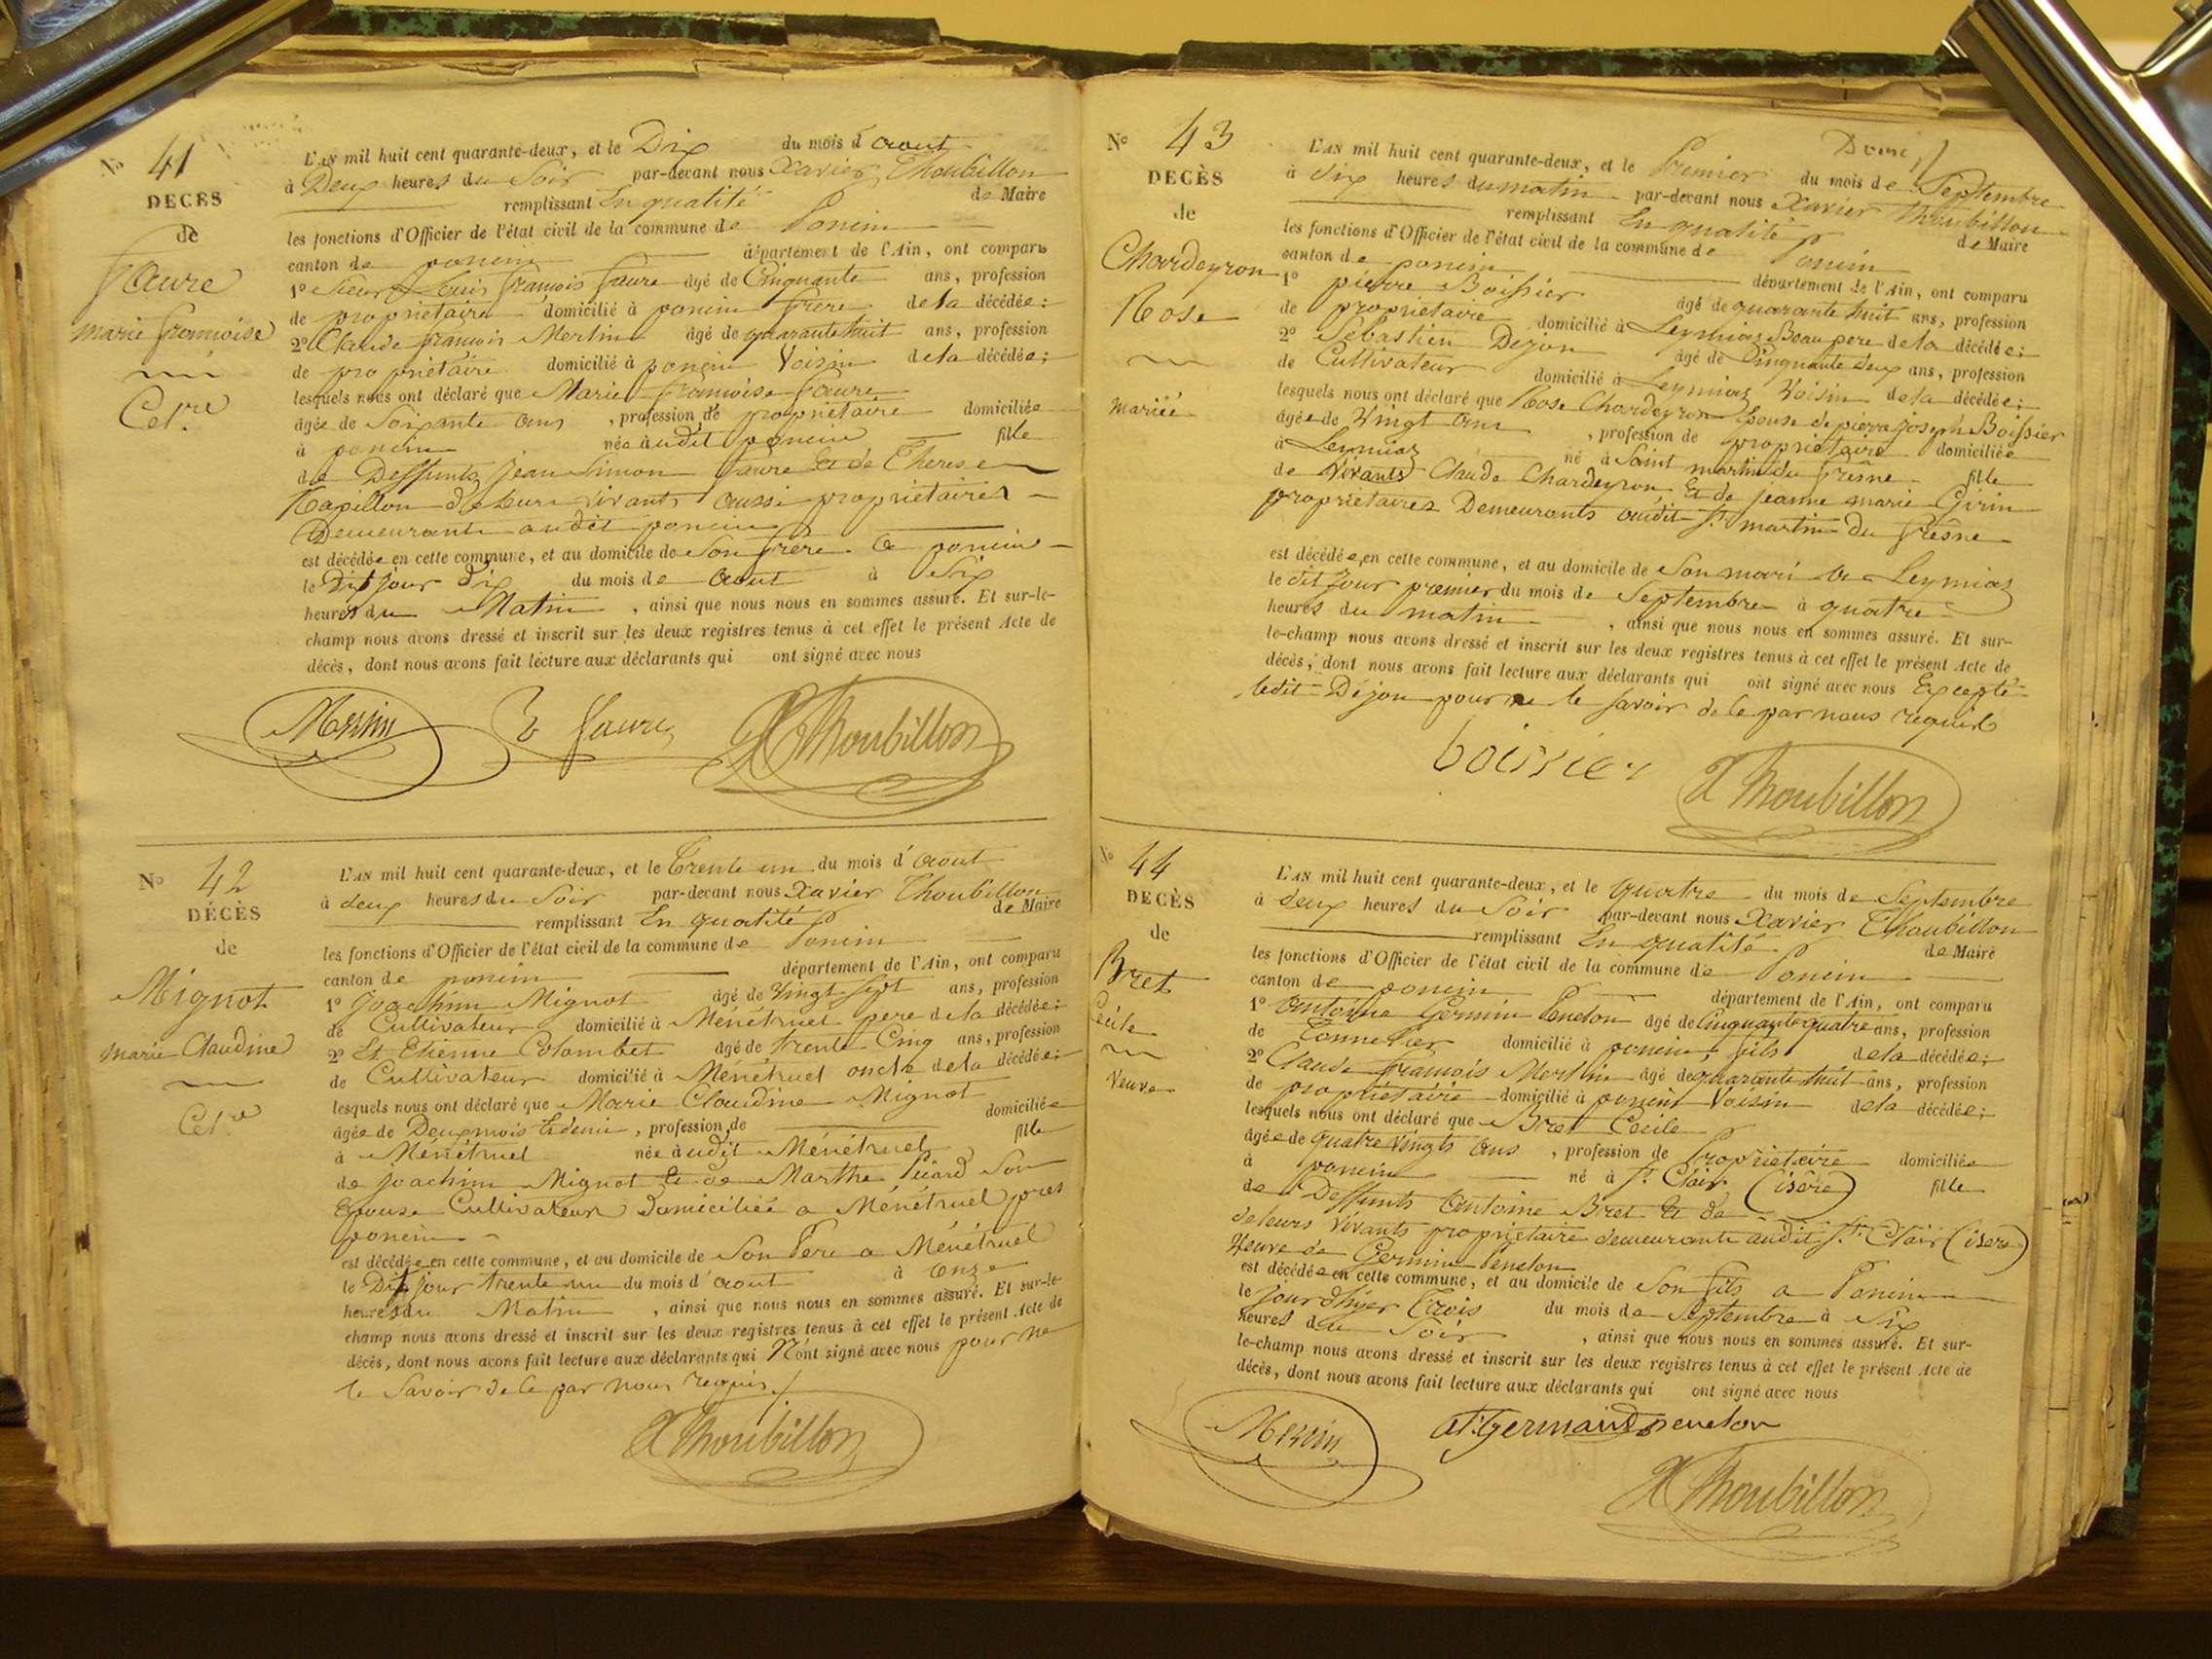 N° 41
DECES
de
Faure
marie françoise
Cel.re
L'AN mil huit cent quarante-deux, et le Dix du mois d'aout
à Deux heures du Soir par-devant nous Xavier Thoubillon
remplissant En qualité de Maire
les fonctions d'Officier de l'état civil de la commune de Poncin
canton de poncin département de l'Ain, ont comparu
1° Sieur Louis françois faure âgé de Cinquante ans, profession
de propriétaire domicilié à poncin frere de la décédée;
2° Claude françois Merlin âgé de quarante huit ans, profession
de propriétaire domicilié à poncin Voisin de la décédée;
lesquels nous ont déclaré que Marie françoise faure
âgée de Soixante ans , profession de propriétaire domiciliée
à poncin née audit poncin fille
de Deffunts Jean Simon faure Et de Therese
Papillon de Leurs vivants aussi propriétaires
Demeurants audit poncin
est décédée en cette commune, et au domicile de Son frère a poncin
le Dit jour dix du mois de aout à Six
heures du Matin , ainsi que nous nous en sommes assuré. Et sur-le-
champ nous avons dressé et inscrit sur les deux registres tenus à cet effet le présent Acte de
décès, dont nous avons fait lecture aux déclarants qui ont signé avec nous
Merlin faure X Thoubillon
N° 42
DÉCÈS
de
Mignot
marie Claudine
Cel.re
L'AN mil huit cent quarante-deux, et le Trente un du mois d'aout
à deux heures du Soir par-devant nous Xavier Thoubillon
remplissant En qualité de Maire
les fonctions d'Officier de l'état civil de la commune de Poncin
canton de poncin département de l'Ain, ont comparu
1° Joachim Mignot âgé de Vingt sept ans, profession
de Cultivateur domicilié à Ménétruel pere de la décédée;
2° Et Etienne Colombet âgé de trente Cinq ans, profession
de Cultivateur domicilié à Ménétruel oncle de la décédée;
lesquels nous ont déclaré que Marie Claudine Mignot
âgée de Deux mois Et demi , profession de domiciliée
à Ménétruel née audit Ménétruel fille
de joachim Mignot Et de Marthe Picard Son
Epouse Cultivateurs Domiciliés a Ménétruel pres
poncin
est décédée en cette commune, et au domicile de Son Pere a Ménétruel
le Dit jour trente un du mois d'aout à Onze
heures du Matin , ainsi que nous nous en sommes assuré. Et sur-le-
champ nous avons dressé et inscrit sur les deux registres tenus à cet effet le présent Acte de
décès, dont nous avons fait lecture aux déclarants qui N'ont signé avec nous pour ne
le Savoir de ce par nous requis
X Thoubillon
N° 43
DECÈS
de
Chardeyron
Rose
mariée
L'AN mil huit cent quarante-deux, et le Premier du mois de Septembre
à Six heures du matin par-devant nous Xavier Thoubillon
remplissant En qualité de Maire
les fonctions d'Officier de l'état civil de la commune de Poncin
canton de poncin département de l'Ain, ont comparu
1° pierre Boissier âgé de quarante huit ans, profession
de propriétaire domicilié à Leymiaz Beau pere de la décédée;
2° Sébastien Dejon âgé de Cinquante deux ans, profession
de Cultivateur domicilié à Leymiaz Voisin de la décédée;
lesquels nous ont déclaré que Rose Chardeyron Epouse de pierre joseph Boissier
âgée de Vingt ans , profession de propriétaire domiciliée
à Leymiaz né à Saint martin du fresne fille
de Vivants Claude Chardeyron Et de jeanne marie Girin
propriétaires Demeurants audit St martin du fresne
est décédée, en cette commune, et au domicile de Son mari a Leymiaz
le dit Jour premier du mois de Septembre à quatre
heures du matin , ainsi que nous nous en sommes assuré. Et sur-
le-champ nous avons dressé et inscrit sur les deux registres tenus à cet effet le présent Acte de
décès, dont nous avons fait lecture aux déclarants qui ont signé avec nous Excepté
ledit Dejon pour ne le savoir de ce par nous requis
boissier X Thoubillon
N° 44
DECÈS
de
Bret
Cecile
Veuve
L'AN mil huit cent quarante-deux, et le quatre du mois de Septembre
à deux heures du Soir par-devant nous Xavier Thoubillon
remplissant En qualité de Maire
les fonctions d'Officier de l'état civil de la commune de Poncin
canton de poncin département de l'Ain, ont comparu
1° Antoine Germin Peneton âgé de Cinquante quatre ans, profession
de Tonnelier domicilié à poncin, fils de la décédée;
2° Claude françois Merlin âgé de quarante huit ans, profession
de propriétaire domicilié à poncin Voisin de la décédée;
lesquels nous ont déclaré que Bret Cecile
âgée de quatre Vingts ans , profession de Propriétaire domiciliée
à poncin né à St Clair (isère) fille
de Deffunts Antoine Bret Et de
de leurs Vivants propriétaire demeurants audit St Clair (isere)
Veuve de Germin Peneton
est décédée en cette commune, et au domicile de Son fils a Poncin
le jour d'hyer Trois du mois de Septembre à Six
heures du Soir , ainsi que nous nous en sommes assuré. Et sur-
le-champ nous avons dressé et inscrit sur les deux registres tenus à cet effet le présent Acte de
décès, dont nous avons fait lecture aux déclarants qui ont signé avec nous
Merlin at. germain peneton
X Thoubillon